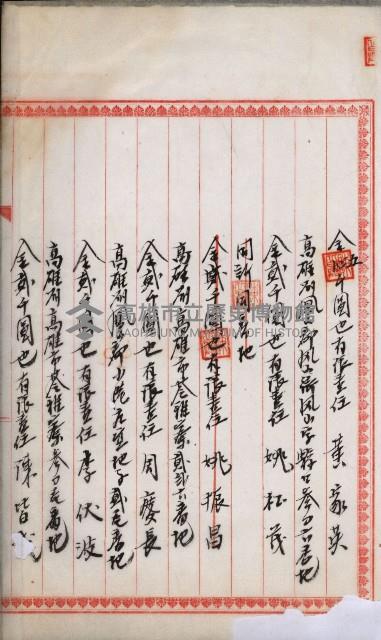 金五千圓也有限責任 黄家英
高雄州鳳山郡鳳山街鳳山字縣口參〇六番地
金貳千圓也有限責任 姚石茂
同所同番地
金貳千圓也有限責任 姚振昌
高雄州高雄市苓雅寮貳貳六番地
金貳千圓也有限責任 周慶長
高雄州 郡小港庄 地
金貳千圓也有限責任 李伏波
高雄州高雄市苓雅寮參 番地
金貳千圓也有限責任 陳皆
高雄市立歷史博物館
KAOHSIUNG MUSEUM OF HISTORY